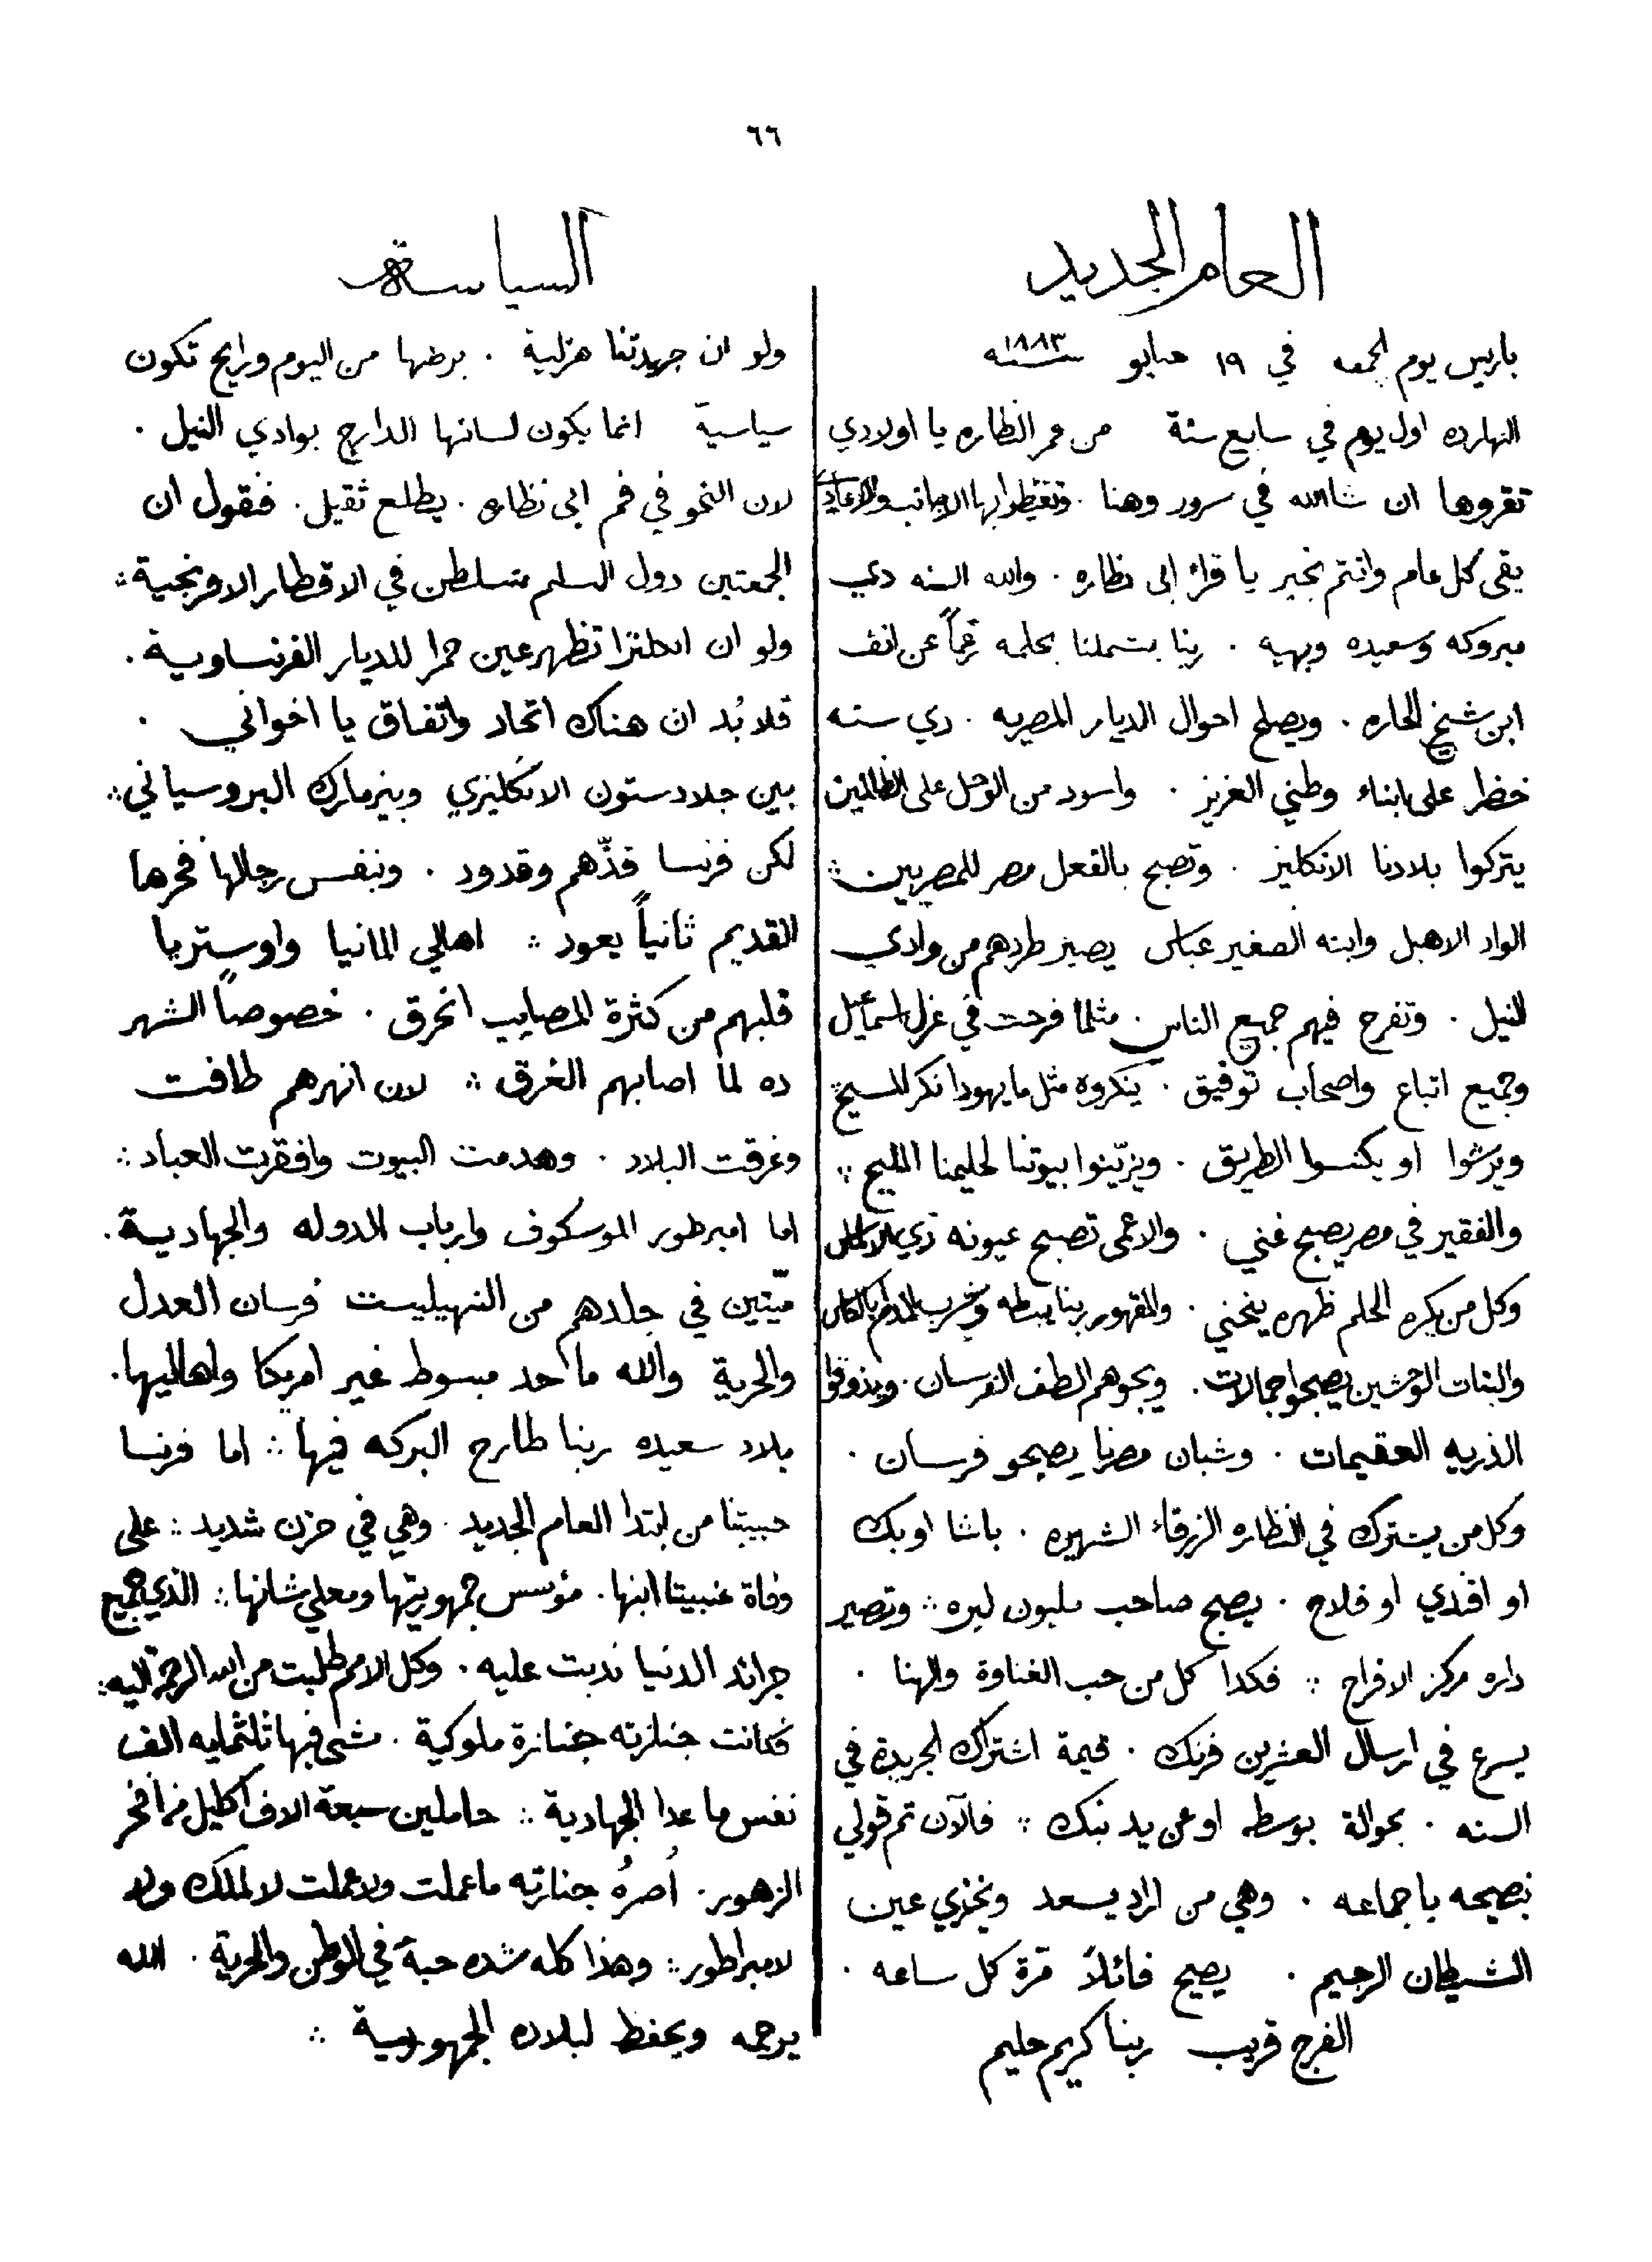 ٦٦
العام الجديد
باريس يوم الجمعه في ١٩ جنايو سنه ١٨٨٣
النهارده اول يوم في سابع سنة من عمر النظاره يا اولادي
تقروها ان شاالله في سرور وهنا . وتغيظوا بها الاجانب والاعادي
يقى كل عام وانتم بخير يا قراء ابى نظاره . والله السنه دي
مبروكه وسعيده وبهيه . ربنا بشملنا بحلمه رغماً عن انف
ابن شيخ الحاره . ويصلح احوال الديار المصريه . دي سنه
خضرا على ابناء وطني العزيز . واسود من الوحل على الظالمين
يتركوا بلادنا الانكليز . وتصبح بالفعل مصر للمصريين ∴
الواد الاهبل وابنه الصغير عباس يصير طردهم من وادي
النيل . وتفرح فيهم جميع الناس . مثلما فرحت في عزل اسماعيل
وجميع اتباع واصحاب توفيق . ينكروه مثل ما يهودا نكر المسيح ∴
ويرشوا او يكنسوا الطريق . ويزيّنوا بيوتنا لحليمنا المليح ∴
والفقير في مصر يصبح غني . والاعمى تصبح عيونه زي
وكل من يكره الحلم ظهره ينحني . والمقهور ربنا يبسطه ويشرب المدام بالكاس
والبنات الوحشين يصبحوا جمالات . ويجوهم الطف العرسان . ويذوقوا
الذريه العقيمات . وشبان مصرنا يصبحو فرسان .
وكل من يشترك في النظاره الزرقاء الشهيره . باشا او بك
او افندي او فلاح . يصبح صاحب مليون ليره ∴ وتصير
داره مركز الافراح ∴ فكدا كل من حب الغناوة والهنا .
يسرع في ارسال العشرين فرنك . قيمة اشتراك الجريدة في
السنه . بحوالة بوسطه او عن يد بنك ∴ فالآن تم قولي
نصيحه يا جماعه . وهي من اراد يسعد ويخزي عين
الشيطان الرجيم . يصيح قائلاً مرة كل ساعه .
الفرج قريب ربنا كريم حليم
السياسة
ولو ان جريدتنا هزلية . برضها من اليوم ورايح تكون
سياسية انما يكون لسانها الدارج بوادي النيل .
لان النحو في فم ابى نظاره . يطلع ثقيل . فنقول ان
الجمعتين دول السلم متسلطن في الاقطار الافرنجية ∴
ولو ان انجلترا تظهر عين حمرا للديار الفرنساوية .
فلا بُد ان هناك اتحاد واتفاق يا اخواني .
بين جلادستون الانكليزي وبيزمارك البروسياني ∴
لكن فرنسا قدّهم وقدود . وبنفس رجالها فخرها
القديم ثانياً يعود ∴ اهالي المانيا واوستريا
قلبهم من كثرة المصايب انحرق . خصوصاً الشهر
ده لما اصابهم الغرق ∴ لان انهرهم طافت
وغرقت البلاد . وهدمت البيوت وافقرت العباد ∴
اما امبرطور الموسكوف وارباب الدوله والجهادية .
ميّتين في جلدهم من النهيليست فرسان العدل
والحرية والله ما احد مبسوط غير امريكا واهاليها .
بلاد سعيده ربنا طارح البركه فيها ∴ اما فرنسا
حبيبتنا من ابتدا العام الجديد . وهي في حزن شديد ∴ على
وفاة غنبيتا ابنها . مؤسس جمهوريتها ومعلي شانها ∴ الذي جميع
جرائد الدنيا ندبت عليه . وكل الامم طلبت من الله الرحمة اليه ∴
فكانت جنازته جنازة ملوكية . مشى فيها ثلثمايه الف
نفس ما عدا الجهادية ∴ حاملين سبعة الاف اكليل من افخر
الزهور . جنازته ما عملت ولا عملت لا لملك ولا
لامبراطور ∴ وهذا كله شده حبة في الوطن والحرية . الله
يرحمه ويحفظ لبلاده الجمهورية ∴